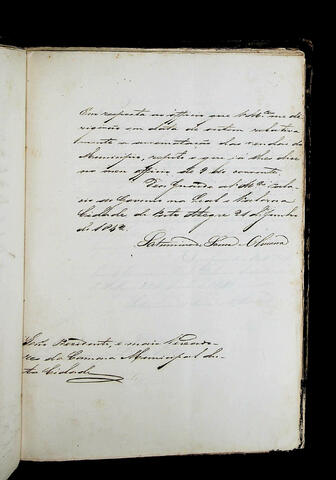 Em resposta ao officio que V. Mces me di-
rigirão em data de ontem relativa
mente a arrematação das rendas do
Municipio, repito o que já lhes disse
no meu officio de 9 do corrente.
Deos Guarde a V. Mces Palac
io do Governo na Leal e Valorosa
Cidade de Porto Alegre 21 de Junho
de 1842.
Saturnino de Souza e Oliveira
Snrs Presidente, e mais Vereado-
res da Camara Municipal des-
ta Cidade